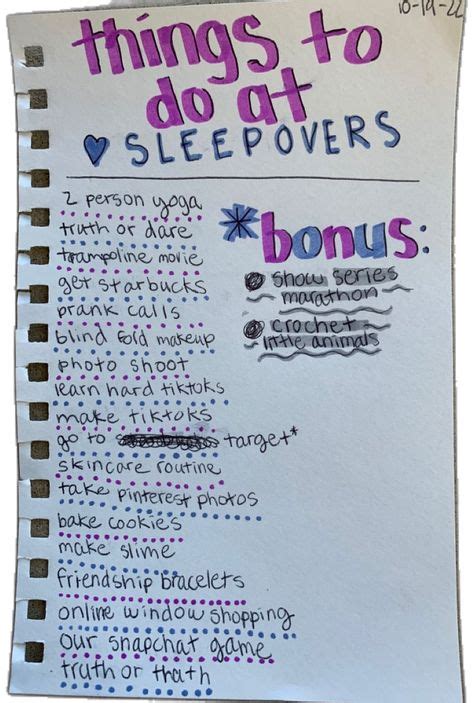 10-19-22
things to
do at
SLEEPOVERS
2 person yoga
truth or dare
trampoline movie
get starbucks
prank calls
blind fold makeup
photo shoot
learn hard tiktoks
make tiktoks
go to target*
skincare routine
take pinterest photos
bake cookies
make slime
friendship bracelets
online window shopping
our snapchat game
truth or thath
*bonus:
show series
marathon
crochet
little animals